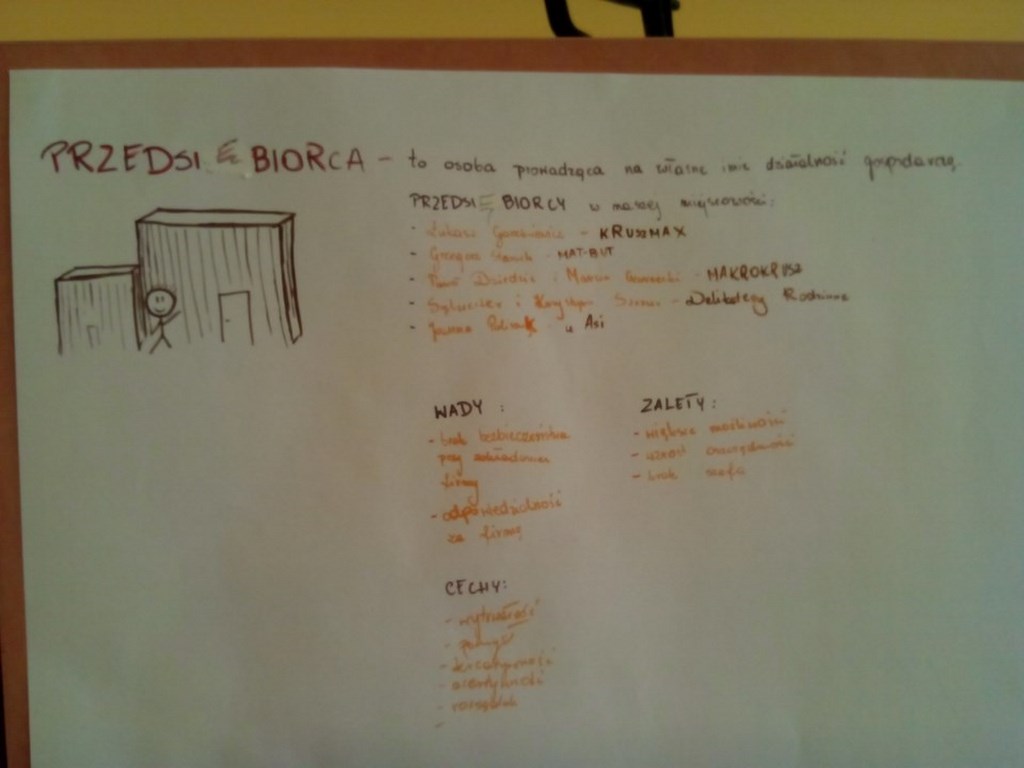 PRZEDSIĘBIORCA - to osoba prowadząca na własne imię działalność gospodarczą.
PRZEDSIĘBIORCY w naszej miejscowości:
- Łukasz - KRUSZMAX
- Grzegorz - MAT-BUT
- Dziedzic i Marcin - MAKROKRUSZ
- Sylwester i Krystyna - Delikatesy Rodzinne
- Joanna u Asi
WADY :
- brak bezpieczeństwa
przy zakładaniu
firmy
- odpowiedzialność
za firmę
ZALETY :
- większe możliwości
- wzrost
- brak szefa
CECHY:
- wytrwałość
- pomysł
- kreatywność
- rozsądek
-